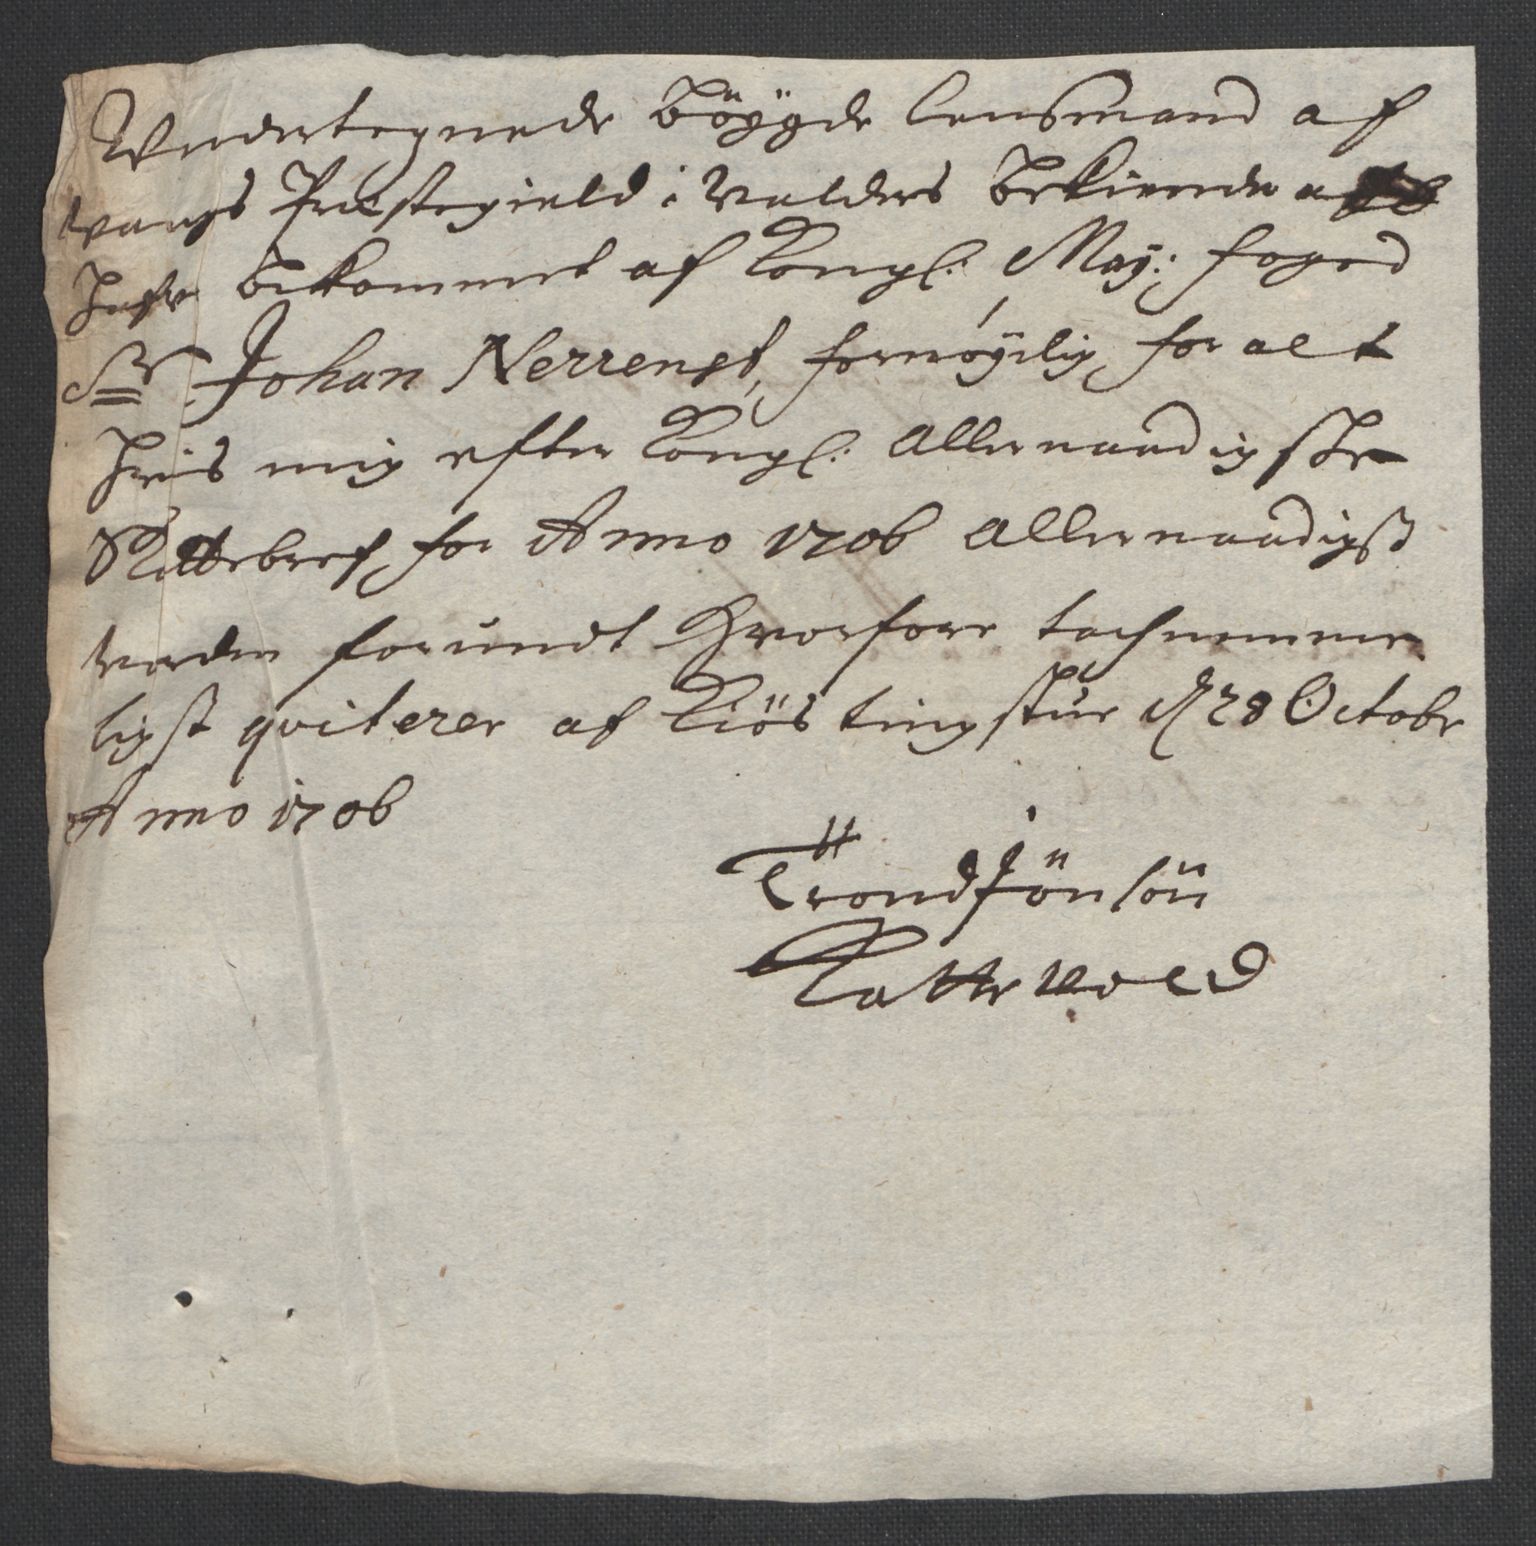 Undertegnede Böÿgde Lensmand af
Vangs Præstegield i Valders Bekiende at
Hafve Bekommet af Kongl: Maÿ: Foged
Sr Johan Nerrengst, fornöÿelig for alt
Hvis mig efter Kongl: Allernaadigste
Skattebref for Anno 1706 Allernaadigst
verden forundt Hvorfore tachnemme
ligst qviterer af Kiös tingstue d 28 Octobr
Anno 1706
Trond Jönsön
Kattevold